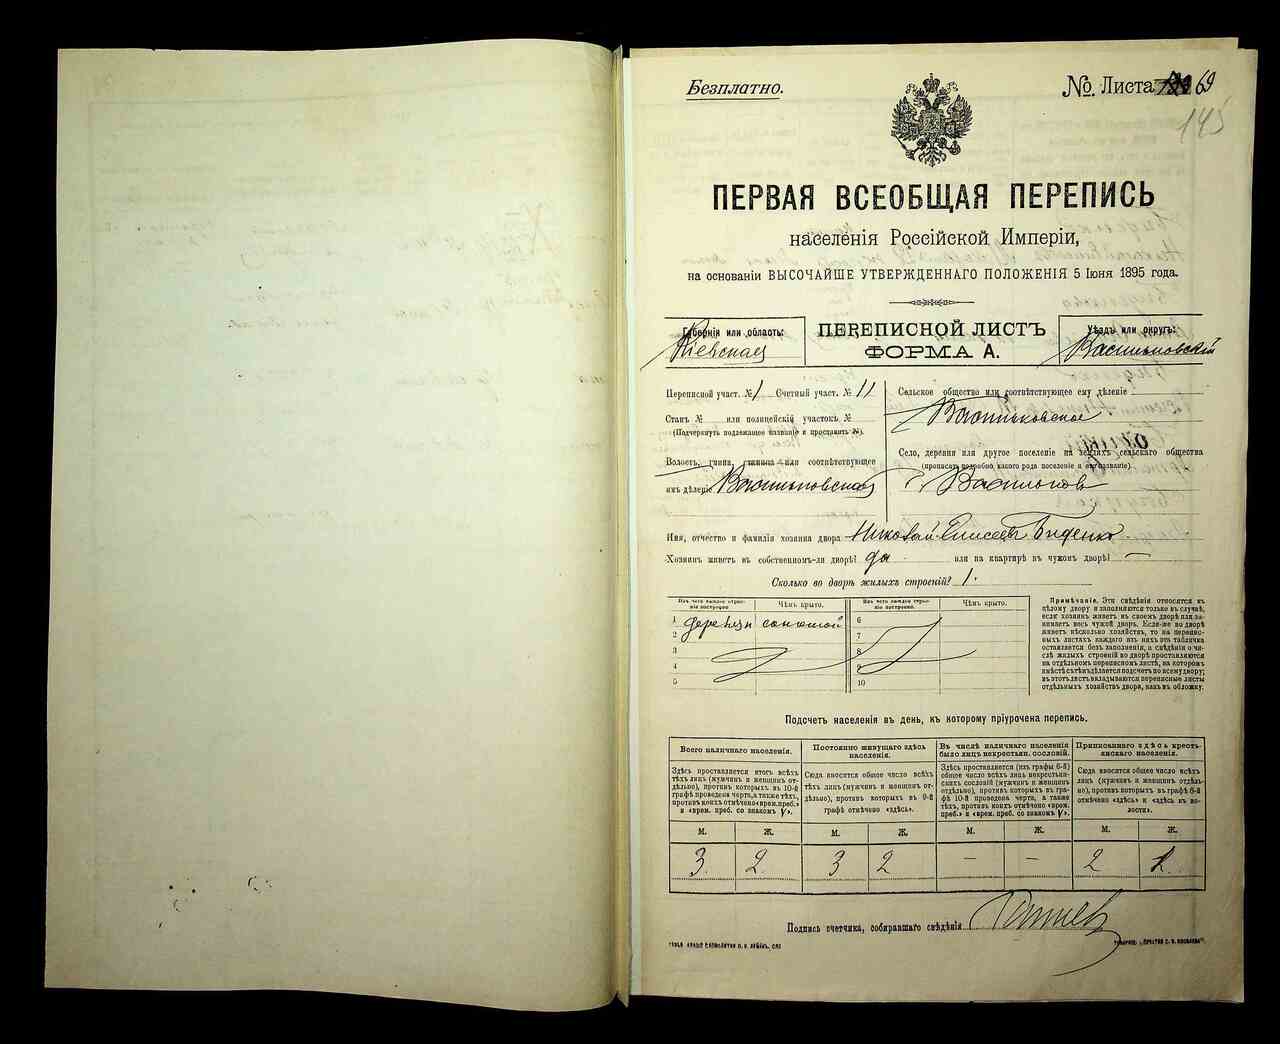 Безплатно.
№ Листа 69
145
ПЕРВАЯ ВСЕОБЩАЯ ПЕРЕПИСЬ
населенія Россійской Имперіи,
на основаніи ВЫСОЧАЙШЕ УТВЕРЖДЕННАГО ПОЛОЖЕНІЯ 5 Іюня 1895 года.
Губернія или область:
Кіевская
ПЕРЕПИСНОЙ ЛИСТЪ
ФОРМА А.
Уѣздъ или округъ:
Васильковскій
Переписной участ. № 1 Счетный участ. № 11
Станъ № или полицейскій участокъ №
(Подчеркнуть подлежащее названіе и проставить №).
Волость, гмина, станица или соотвѣтствующее
имъ дѣленіе Васильковская
Сельское общество или соотвѣтствующее ему дѣленіе
Васильковское
Село, деревня или другое поселеніе на земляхъ сельскаго общества
(прописать подробно, какого рода поселеніе и его названіе).
г. Васильков
Имя, отчество и фамилія хозяина двора Николай Елисеев Биденко
Хозяинъ живетъ въ собственномъ-ли дворѣ? да или на квартирѣ въ чужомъ дворѣ? —
Сколько во дворѣ жилыхъ строеній? 1.
Изъ чего каждое строеніе построено.
Чѣмъ крыто.
Изъ чего каждое строеніе построено.
Чѣмъ крыто.
1 деревян соломой 6
2 7
3 8
4 9
5 10
Примѣчаніе. Эти свѣдѣнія относятся къ
цѣлому двору и заполняются только въ случаѣ,
если хозяинъ живетъ въ своемъ дворѣ или занимаетъ
весь чужой дворъ. Если-же во дворѣ
живетъ нѣсколько хозяйствъ, то на переписныхъ
листахъ каждаго изъ нихъ эта табличка
оставляется безъ заполненія, а свѣдѣнія о числѣ
жилыхъ строеній во дворѣ проставляются
на отдѣльномъ переписномъ листѣ, на которомъ
вмѣстѣ съ тѣмъ дѣлается подсчетъ по всему двору;
въ этотъ листъ вкладываются переписные листы
отдѣльныхъ хозяйствъ двора, какъ въ обложку.
Подсчетъ населенія въ день, къ которому пріурочена перепись.
Всего наличнаго населенія.
Здѣсь проставляется итогъ всѣхъ
тѣхъ лицъ (мужчинъ и женщинъ отдѣльно),
противъ которыхъ въ 10-й
графѣ проведена черта, а также тѣхъ,
противъ коихъ отмѣчено «врем. преб.»
и «врем. преб. со знакомъ V».
Постоянно живущаго здѣсь
населенія.
Сюда вносятся общее число всѣхъ
тѣхъ лицъ (мужчинъ и женщинъ отдѣльно),
противъ которыхъ въ 9-й
графѣ отмѣчено «здѣсь».
Въ числѣ наличнаго населенія
было лицъ некрестьян. сословій.
Здѣсь проставляется (изъ графы 6-й)
общее число всѣхъ лицъ некрестьянскихъ
сословій (мужчинъ и женщинъ
отдѣльно), противъ которыхъ въ графѣ
10-й проведена черта, а также
тѣхъ, противъ коихъ отмѣчено «врем.
преб.» и «врем. преб. со знакомъ V».
Приписаннаго здѣсь крестьянскаго
населенія.
Сюда вносятся общее число всѣхъ
лицъ (мужчинъ и женщинъ отдѣльно),
противъ которыхъ въ графѣ 8-й
отмѣчено «здѣсь» и «здѣсь къ волости».
М. Ж. М. Ж. М. Ж. М. Ж.
3 2 3 2 — — 2
Подпись счетчика, собиравшаго свѣдѣнія